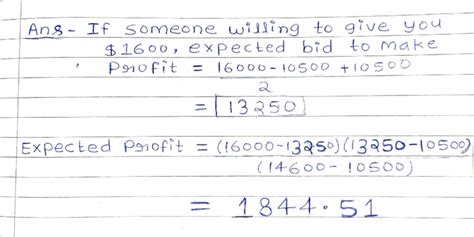 Ans- If someone willing to give you
$1600, expected bid to make
Profit = 16000-10500 +10500
2
= 13250
Expected Profit = (16000-13250)(13250-10500)
(14600-10500)
= 1844.51